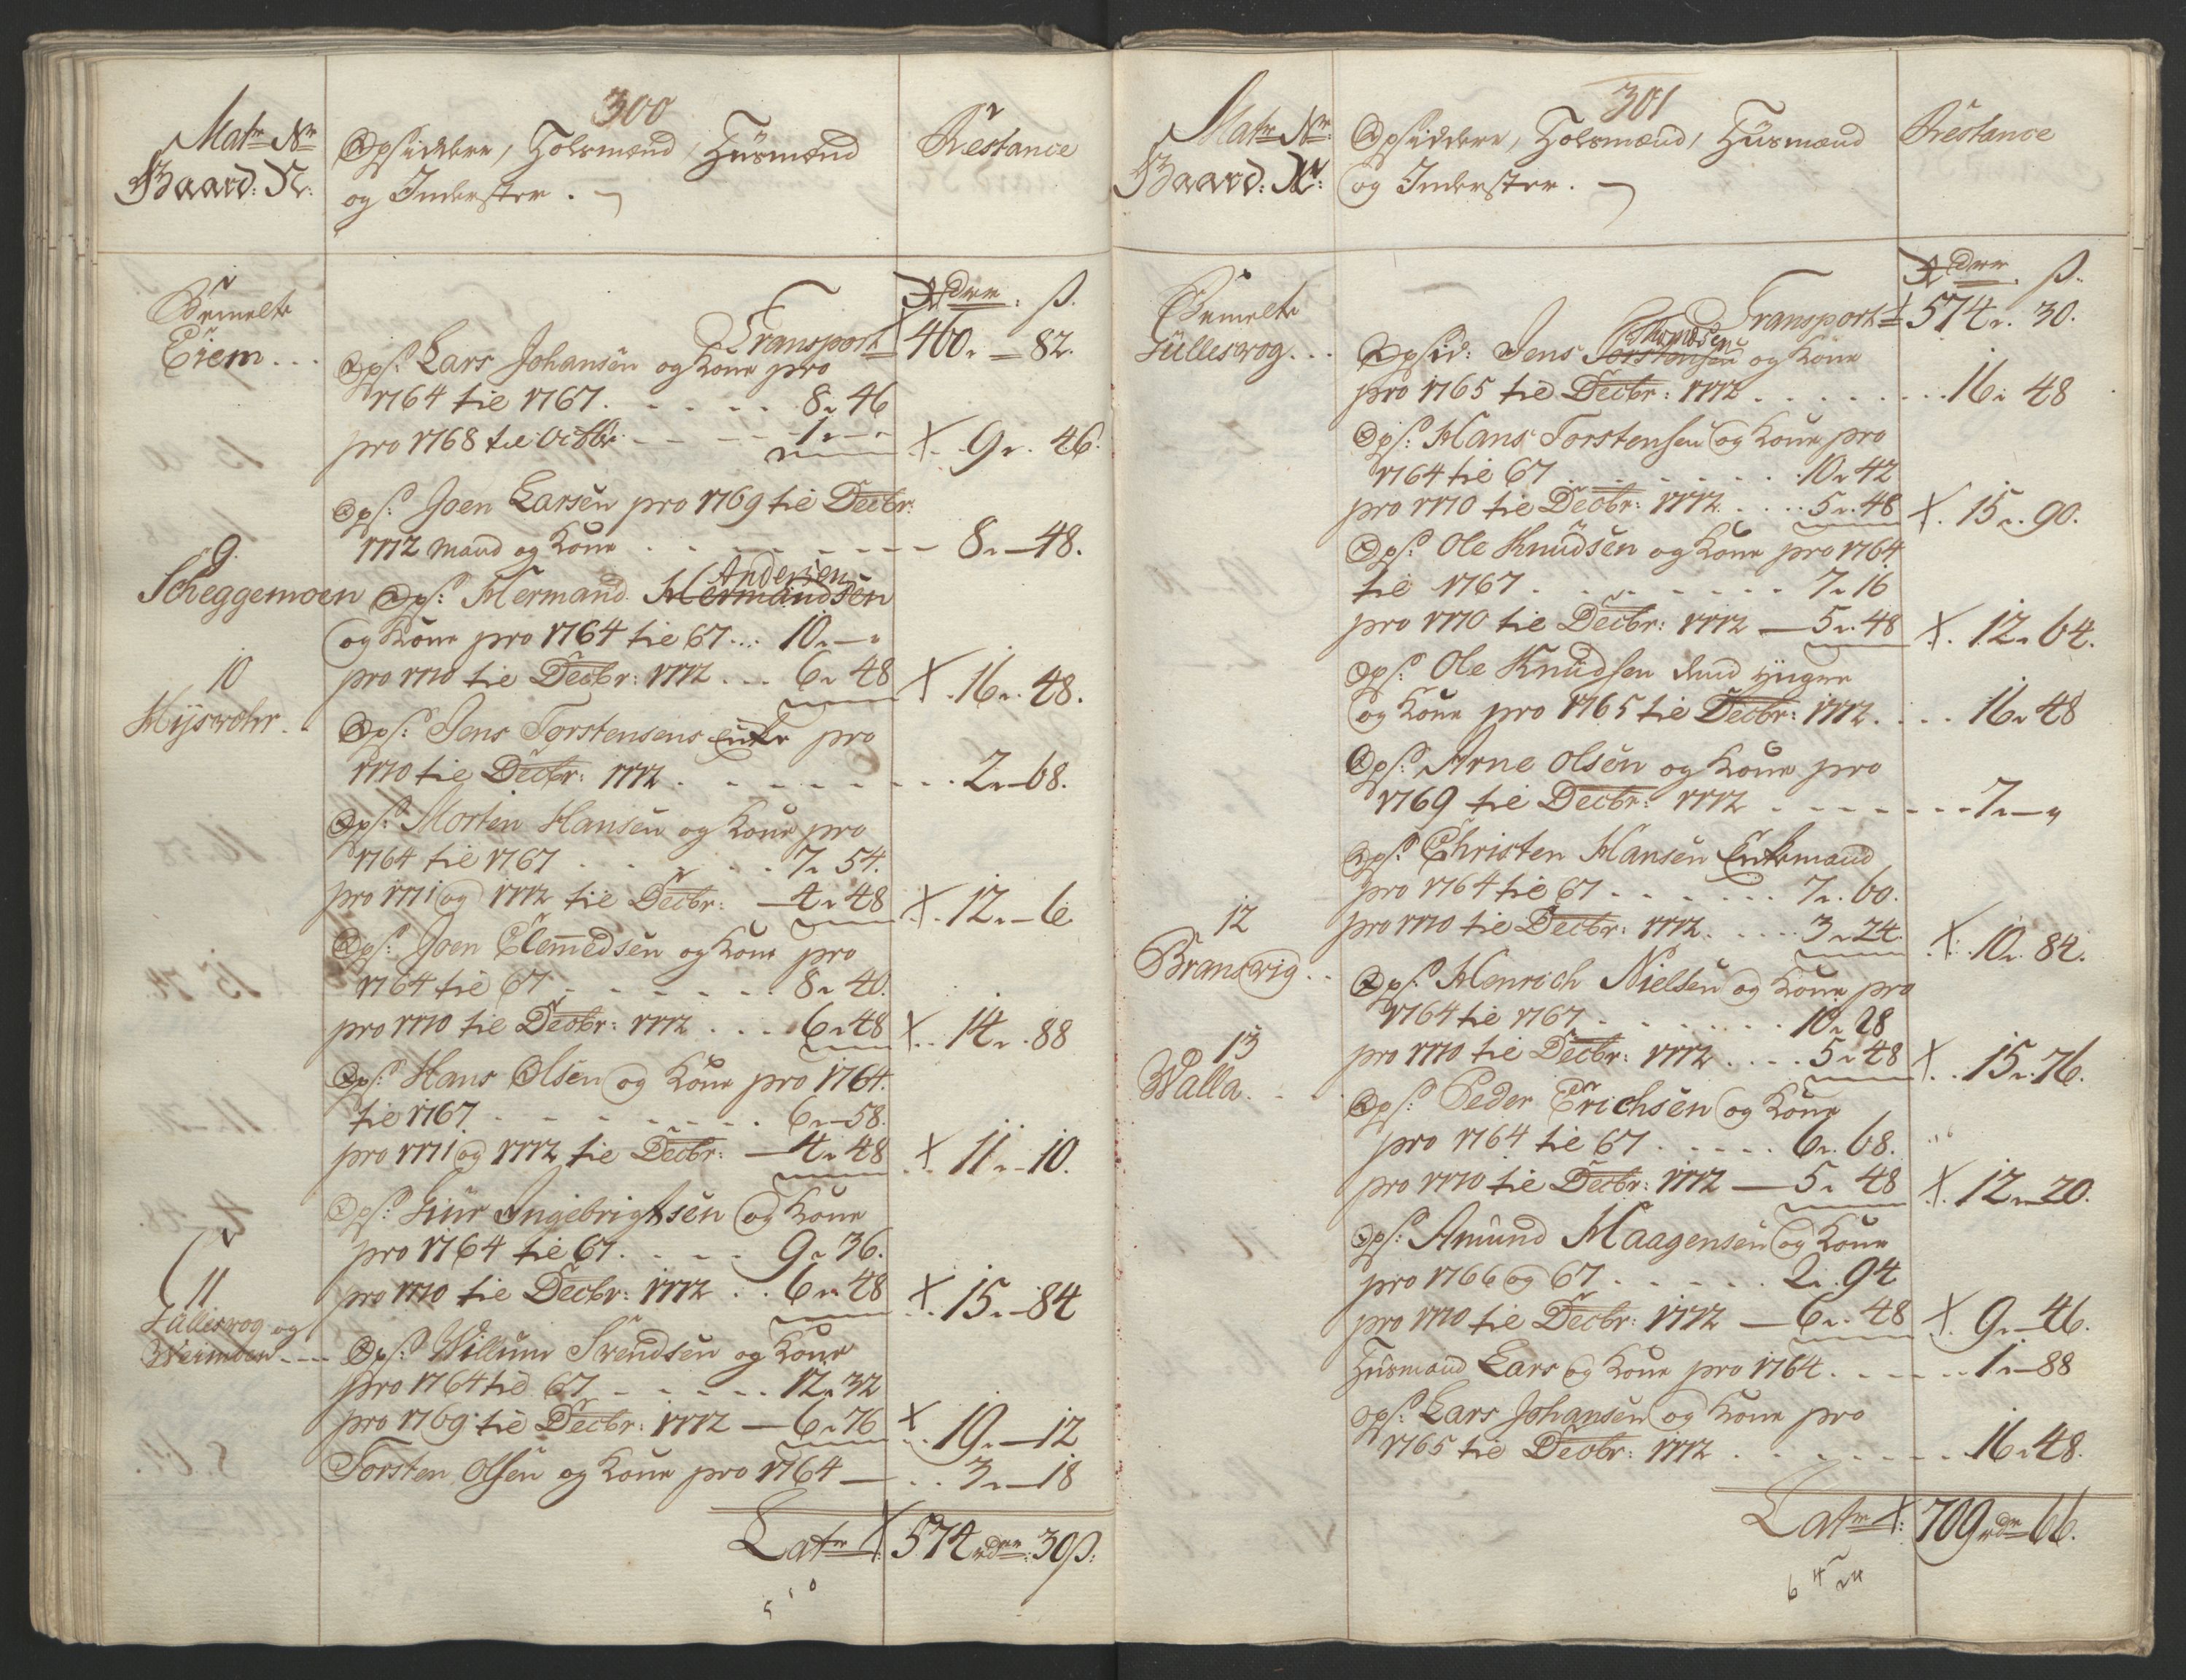 300
Matr Nr
Gaard: N:
Opsiddere, Holsmænd, Huusmænd
og Inderster.
Restance
Rdrr. ß.
Bemelte
Eiem...
Transport 460. 82.
Ops: Lars Johansen og Kone pro
1764 til 1767. 8 46
pro 1768 til Octbr 1 " X. 9. 46.
Ops: Joen Larsen pro 1769 til Decbr:
1772 Mand og Kone 8. 48.
9.
Scheggemoen
Andersen
Ops: Hermand Hermandsen
og Kone pro 1764 til 67... 10. "
pro 1770 til Decbr: 1772... 6. 48 X. 16. 48.
10
Ops: Jens Torstensens Enke pro
1770 til Decbr: 1772. 2. 68.
Ops: Morten Hansen og Kone pro
1764 til 1767 7. 54.
pro 1771 og 1772 til Decbr: 4. 48 X. 12. 6
Ops: Joen Clemmedsen og Kone pro
1764 til 67 8. 40.
pro 1770 til Decbr: 1772... 6. 48 X. 14. 88
Ops: Hans Olsen og Kone pro 1764.
til 1767. 6. 58.
pro 1771 og 1772 til Decbr: 4. 48 X. 11. 10.
Ops: Siur Ingebrigtsen og Kone
pro 1764 til 67. 9. 36.
pro 1770 til Decbr: 1772.. 6. 48 X. 15. 84
11
og
Ops: Willum Svendsen og Kone
pro 1764 til 67 12. 32
pro 1769 til Decbr: 1772 6. 76 X. 19. 12
Torsten Olsen og Kone pro 1764 3. 18
Latr X: 574 rdrr: 30 ß:
301
Matr Nr
Gaard: Nr:
Opsiddere, Holsmænd, Huusmænd
og Inderster.
Restance
Rdrr. ß.
Bemelte
Transport 574. 30.
Thomdsen
Opsid: Jens Torstensen og Kone
pro 1765 til Decbr: 1772 16. 48
Ops: Hans Torstensen og Kone pro
1764 til 67 10. 42
pro 1770 til Decbr: 1772. 5. 48 X. 15. 90.
Ops: Ole Knudsen og Kone pro 1764
til 1767 7. 16
pro 1770 til Decbr: 1772 5. 48 X. 12. 64.
Ops: Ole Knudsen dend yngre
og Kone pro 1765 til Decbr: 1772. 16. 48
Ops: Arne Olsen og Kone pro
1769 til Decbr: 1772 7. "
Ops: Christen Hansen Enkemand
pro 1764 til 67 7. 60.
pro 1770 til Decbr: 1772. 3. 24. X. 10. 84.
12
Branswig..
Ops: Henrich Nielsen og Kone pro
1764 til 1767 10. 28
pro 1770 til Decbr: 1772 5. 48 X. 15. 76.
13
Walla.
Ops: Peder Erichsen og Kone
pro 1764 til 67 6. 68.
pro 1770 til Decbr: 1772 5. 48 X. 12. 20.
Ops: Amund Haagensen og Kone
pro 1766 og 67 2. 94
pro 1770 til Decbr: 1772 6. 48 X. 9. 46.
Huusmand Lars og Kone pro 1764 1. 88
Ops: Lars Johansen og Kone pro
1765 til Decbr: 1772 16. 48.
Latr X: 709 rdr 66.